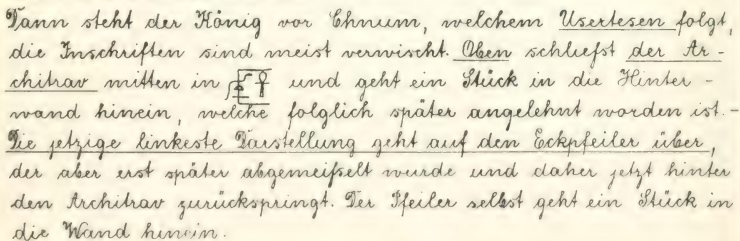 Dann steht der König vor Chnum, welchem Usertesen folgt,
die Inschriften sind meist verwischt. Oben schliefst der Ar-
chitrav mitten in und geht ein Stück in die Hinter-
wand hinein, welche folglich später angelehnt worden ist.-
Die jetzige linkeste Darstellung geht auf den Eckpfeiler über,
der aber erst später abgemeifselt wurde und daher jetzt hinter
den Architrav zurückspringt. Der Pfeiler selbst geht ein Stück in
die Wand hinein.